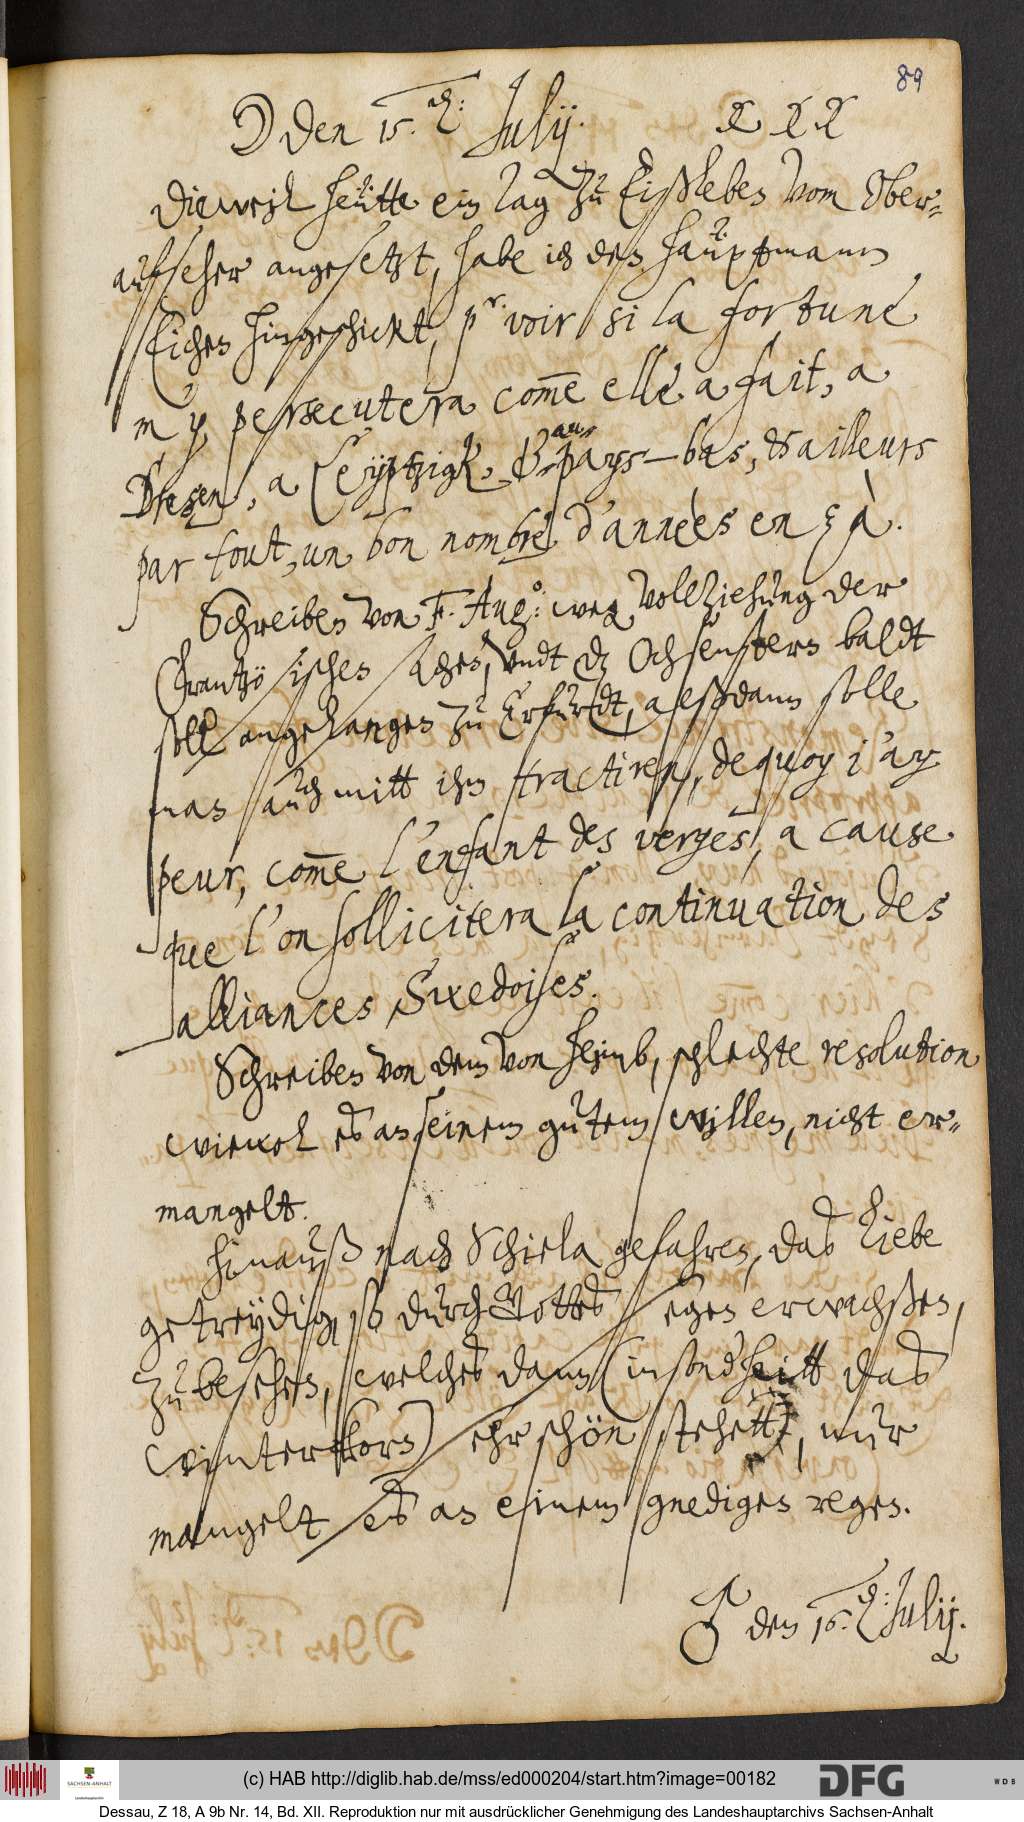 89
☽ den 15.^{den}: Julij. x x x
Dieweil heütte ein tag zu Eißleben vom Ober-
aufseher angesetzt, habe ich den haüptmann
Eichen hingeschickt, p^r. voir si la fortune
m'y persecutera com̅e elle a fait, a
Dresen, a Leyptzigk, & au pays-bas, & ailleurs
par tout, un bon nombre d'années en çà.
Schreiben von F. Aug^o: weg vollziehung der
Frantzösischen sachen, undt dz Ochsenstern baldt
soll angelangen zu Erfurdt, alßdann solle
man auch mitt ihm tractiren, de quoy j'ay
peur, com̅e l'enfant des verges, a cause
que l'on sollicitera la continuation des
alliances Swedoises.
Schreiben von dem von Heimb, schlechte resolution
wiewol es an seinem gutem willen, nicht er-
mangelt.
Hinauß nach Schirla gefahren, das liebe
getreydig, so durch Gottes segen erwachßen,
zu besehen, welches dann (insond'heitt das
winterkorn) sehr schön stehett, nur
mangelt es an einem gnedigen regen.
♂ den 16.^{den}: Julij.
(c) HAB http://diglib.hab.de/mss/ed000204/start.htm?image=00182
SACHSEN-ANHALT
DFG
WDB
Dessau, Z 18, A 9b Nr. 14, Bd. XII. Reproduktion nur mit ausdrücklicher Genehmigung des Landeshauptarchivs Sachsen-Anhalt